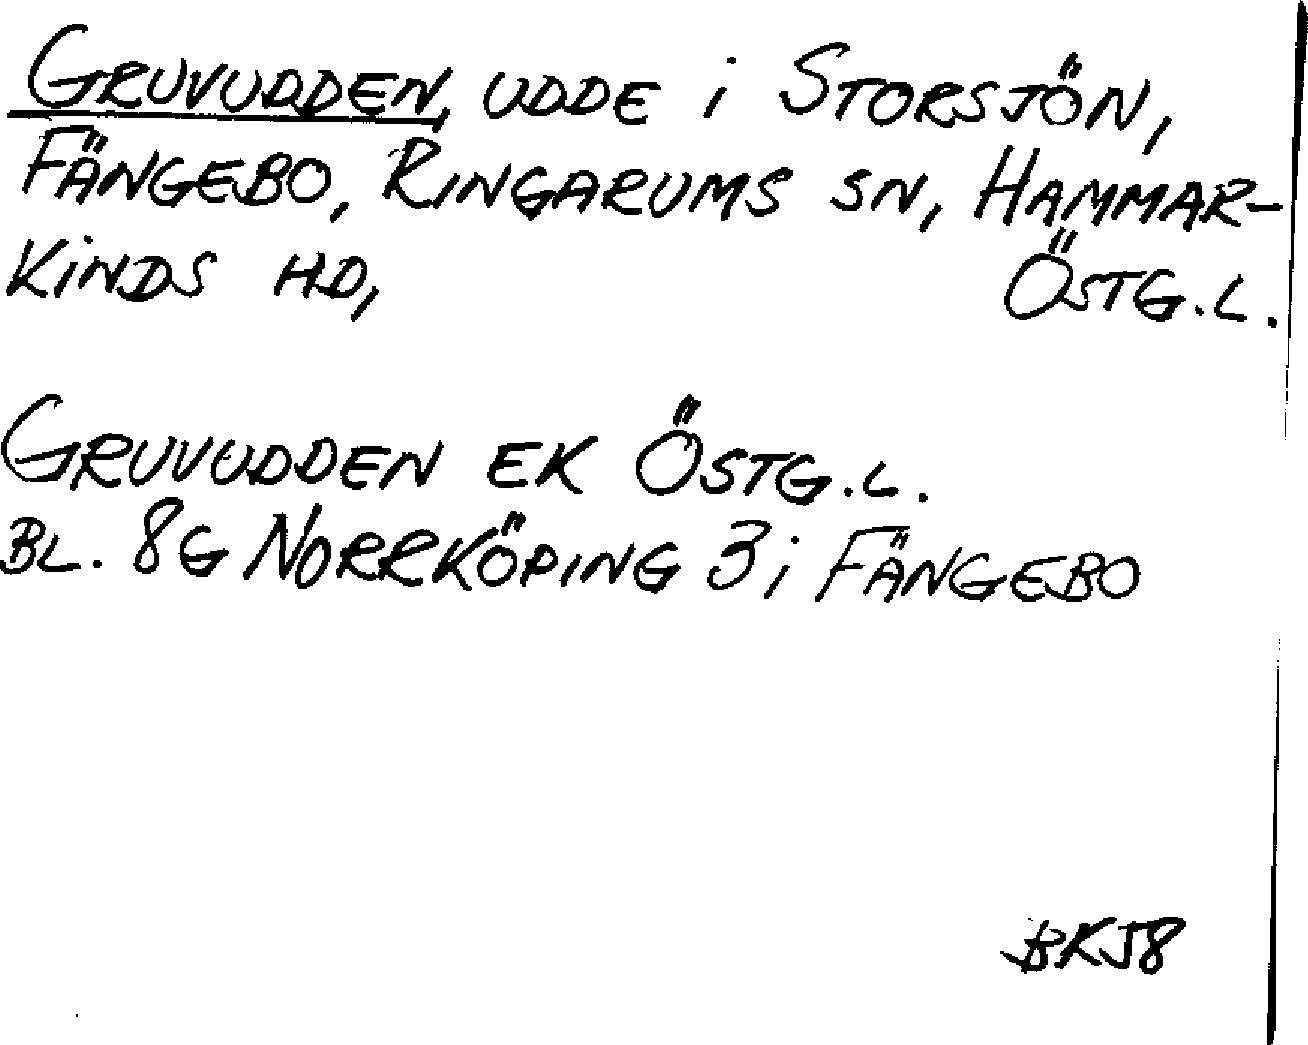 GRUVUDDEN, UDDE i STORSJÖN,
FÄNGEBO, RINGARUMS SN, HAMMAR-
KINDS HD, ÖSTG.L.
GRUVUDDEN EK ÖSTG.L.
BL. 8G NORRKÖPING 3i FÄNGEBO
BKJ8